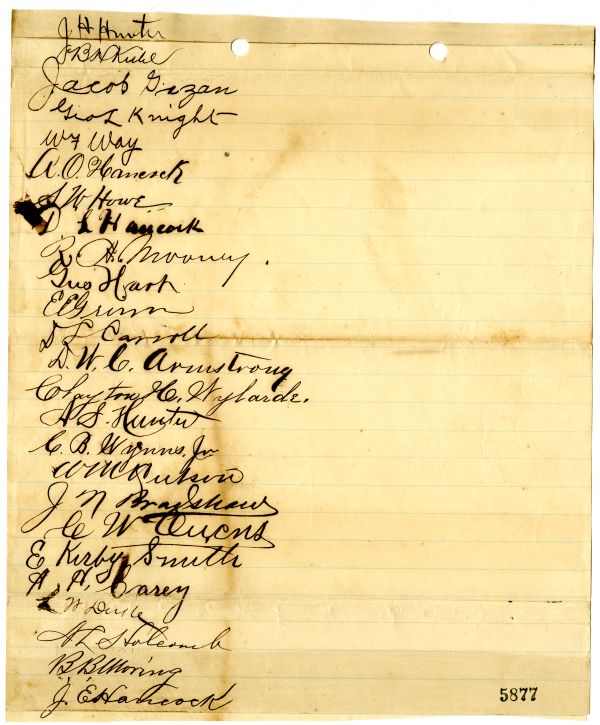 J H Hunter
Jacob Gizan
Geo L Knight
W F Way
A. O. Hancock
S W Howe
D L Hancock
R. H. Mooney.
Geo Hash
E E Grimm
D L Carroll
D. W. C. Armstrong
Clayton C. Wylarde.
A S. Hunter
C. B. Wynns, Jr
J N Bradshaw
C W Owens
E Kirby Smith
A. H. Carey
A L S Holcomb
B. B. Moring
J. E Hancock
5877